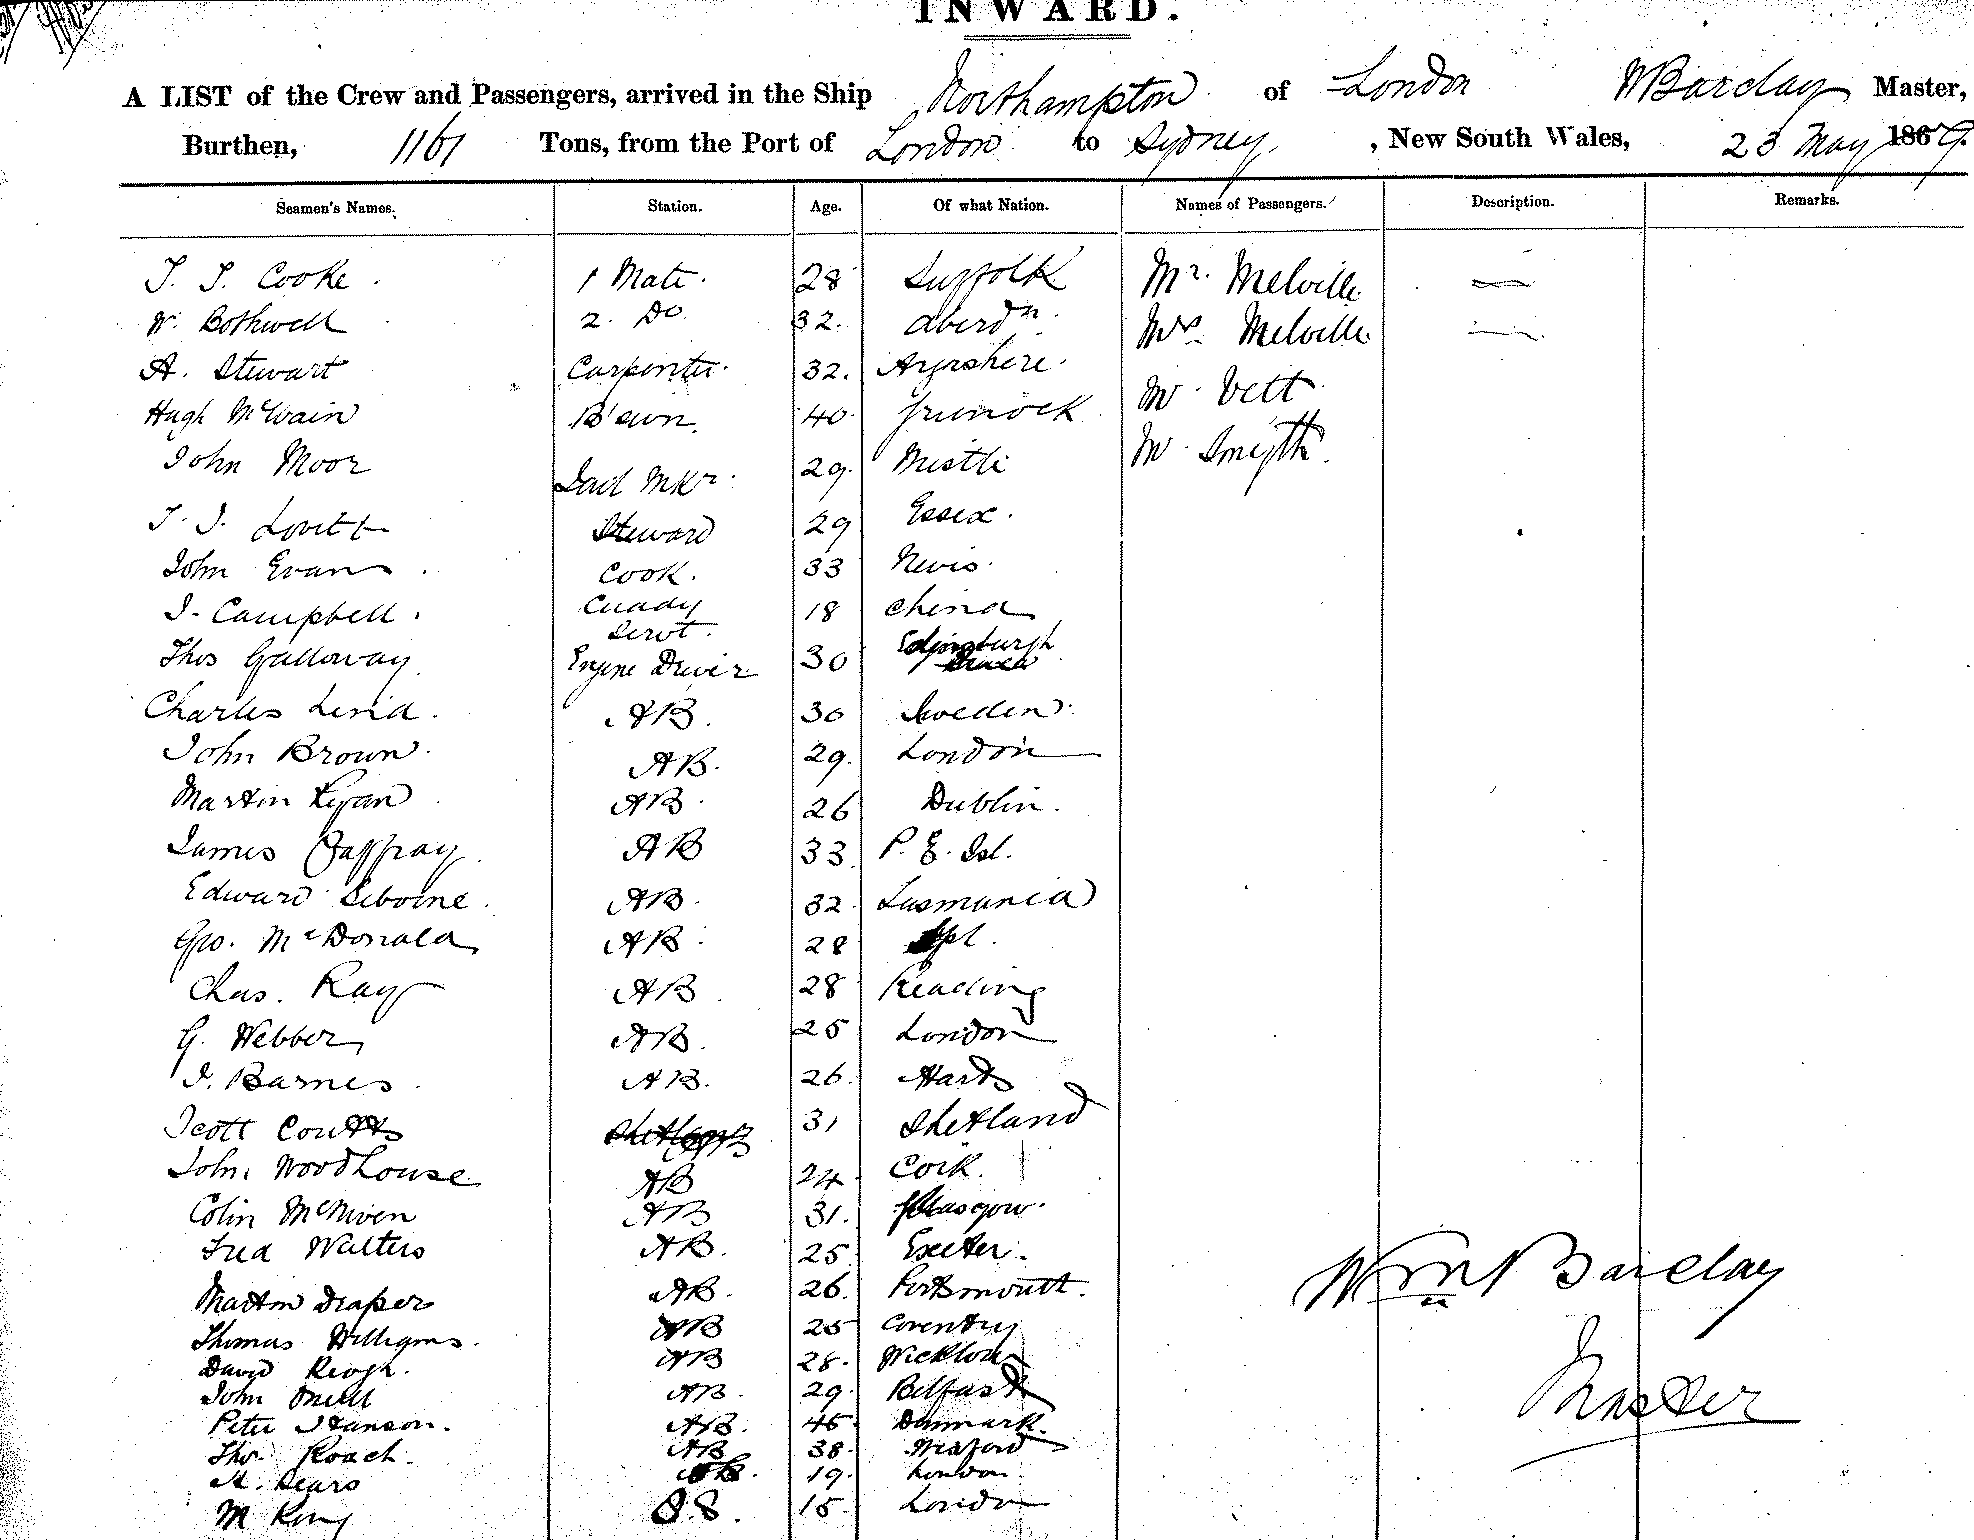 INWARD.
A LIST of the Crew and Passengers, arrived in the Ship Northampton of London W Barclay Master,
Burthen, 1161 Tons, from the Port of London to Sydney, New South Wales, 23 May 1869.
Seamen's Names. Station. Age. Of what Nation. Names of Passengers. Description. Remarks.
J. J. Cooke 1 Mate. 28 Suffolk Mr. Melville —
W. Bothwell 2. Do 32. Aberdn. Mrs. Melville —
A. Stewart Carpenter. 32. Ayrshire. Mr. Vett
Hugh McWain B'swn. 40. Grenock Mr. Smyth.
John Moor Sail Mkr. 29. Mistle
J. J. Lovitt Steward 29 Essex.
John Evans. Cook. 33 Nevis.
J. Campbell. Cuddy Servt. 18 China
Thos Galloway Engine Driver 30 Edinburgh
Charles Lind. AB. 30 Sweden.
John Brown. AB. 29. London
Martin Ryan AB. 26 Dublin.
James Jaffray. AB 33. P. E. Isl.
Edward Seborne. AB. 32. Tasmania
Geo. McDonald AB. 28 Lpl.
Chas. Ray AB 28 Reading
G. Webber AB. 25 London
J. Barnes. AB. 26. Hants
Scott Coutts 31 Shetland
John Woodhouse AB 24. Cork.
Colin McNiven AB 31. Glasgow.
Fred Walters AB. 25 Exeter.
Martin Draper AB. 26. Portsmouth.
Thomas Williams. AB 25 Coventry
David Keogh. AB 28. Wicklow
John Oneill AB. 29. Belfast
Peter Hanson. AB. 45 Denmark.
Tho. Roach. AB 38. Wexford
A. Sears 19. London.
M King O.S. 15. London
Wm Barclay
Master